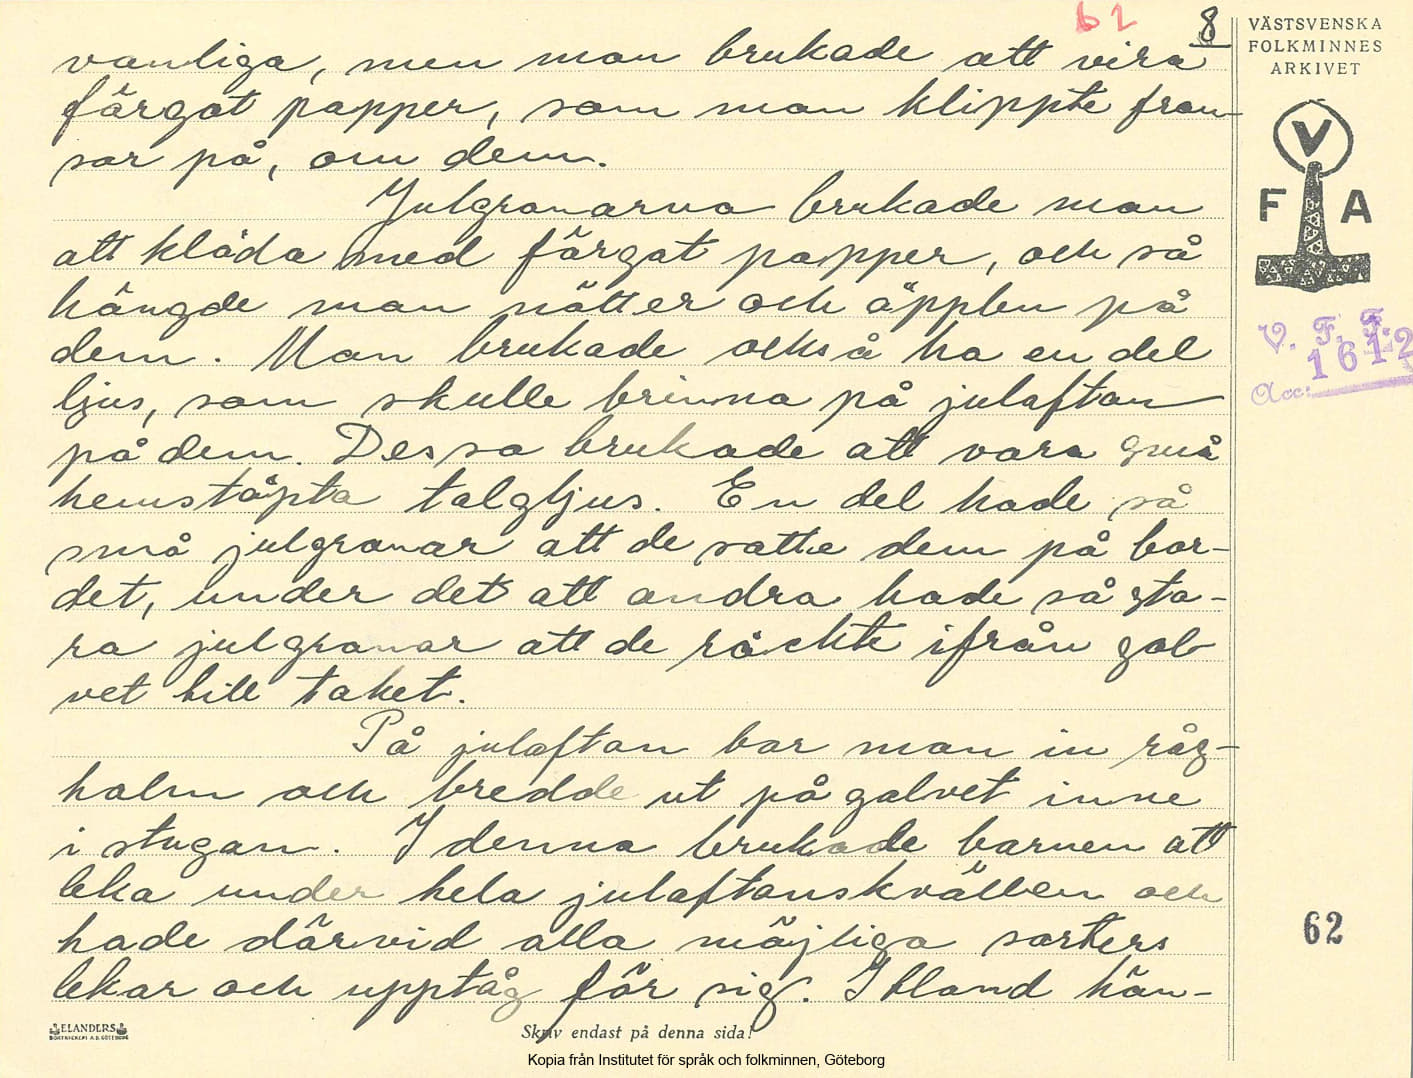 62 8
vanliga, men man brukade att vira
färgat papper, som man klippte fran-
sar på, om dem.
Julgranarna brukade man
att kläda med färgat papper, och så
hängde man nötter och äpplen på
dem. Man brukade också ha en del
ljus, som skulle brinna på julaftan
på dem. Dessa brukade att vara små
hemstöpta talgljus. En del hade så
små julgranar att de satte dem på bor-
det, under det att andra hade så sto-
ra julgranar att de räckte ifrån gol-
vet till taket.
På julaftan bar man in råg-
halm och bredde ut på golvet inne
i stugan. I denna brukade barnen att
leka under hela julaftanskvällen och
hade därvid alla möjliga sorters
lekar och upptåg för sig. Ibland hän-
VÄSTSVENSKA
FOLKMINNES
ARKIVET
V
F A
V. F. F.
Acc: 1612
62
ELANDERS
BOKTRYCKERI A.B. GÖTEBORG
Skriv endast på denna sida!
Kopia från Institutet för språk och folkminnen, Göteborg